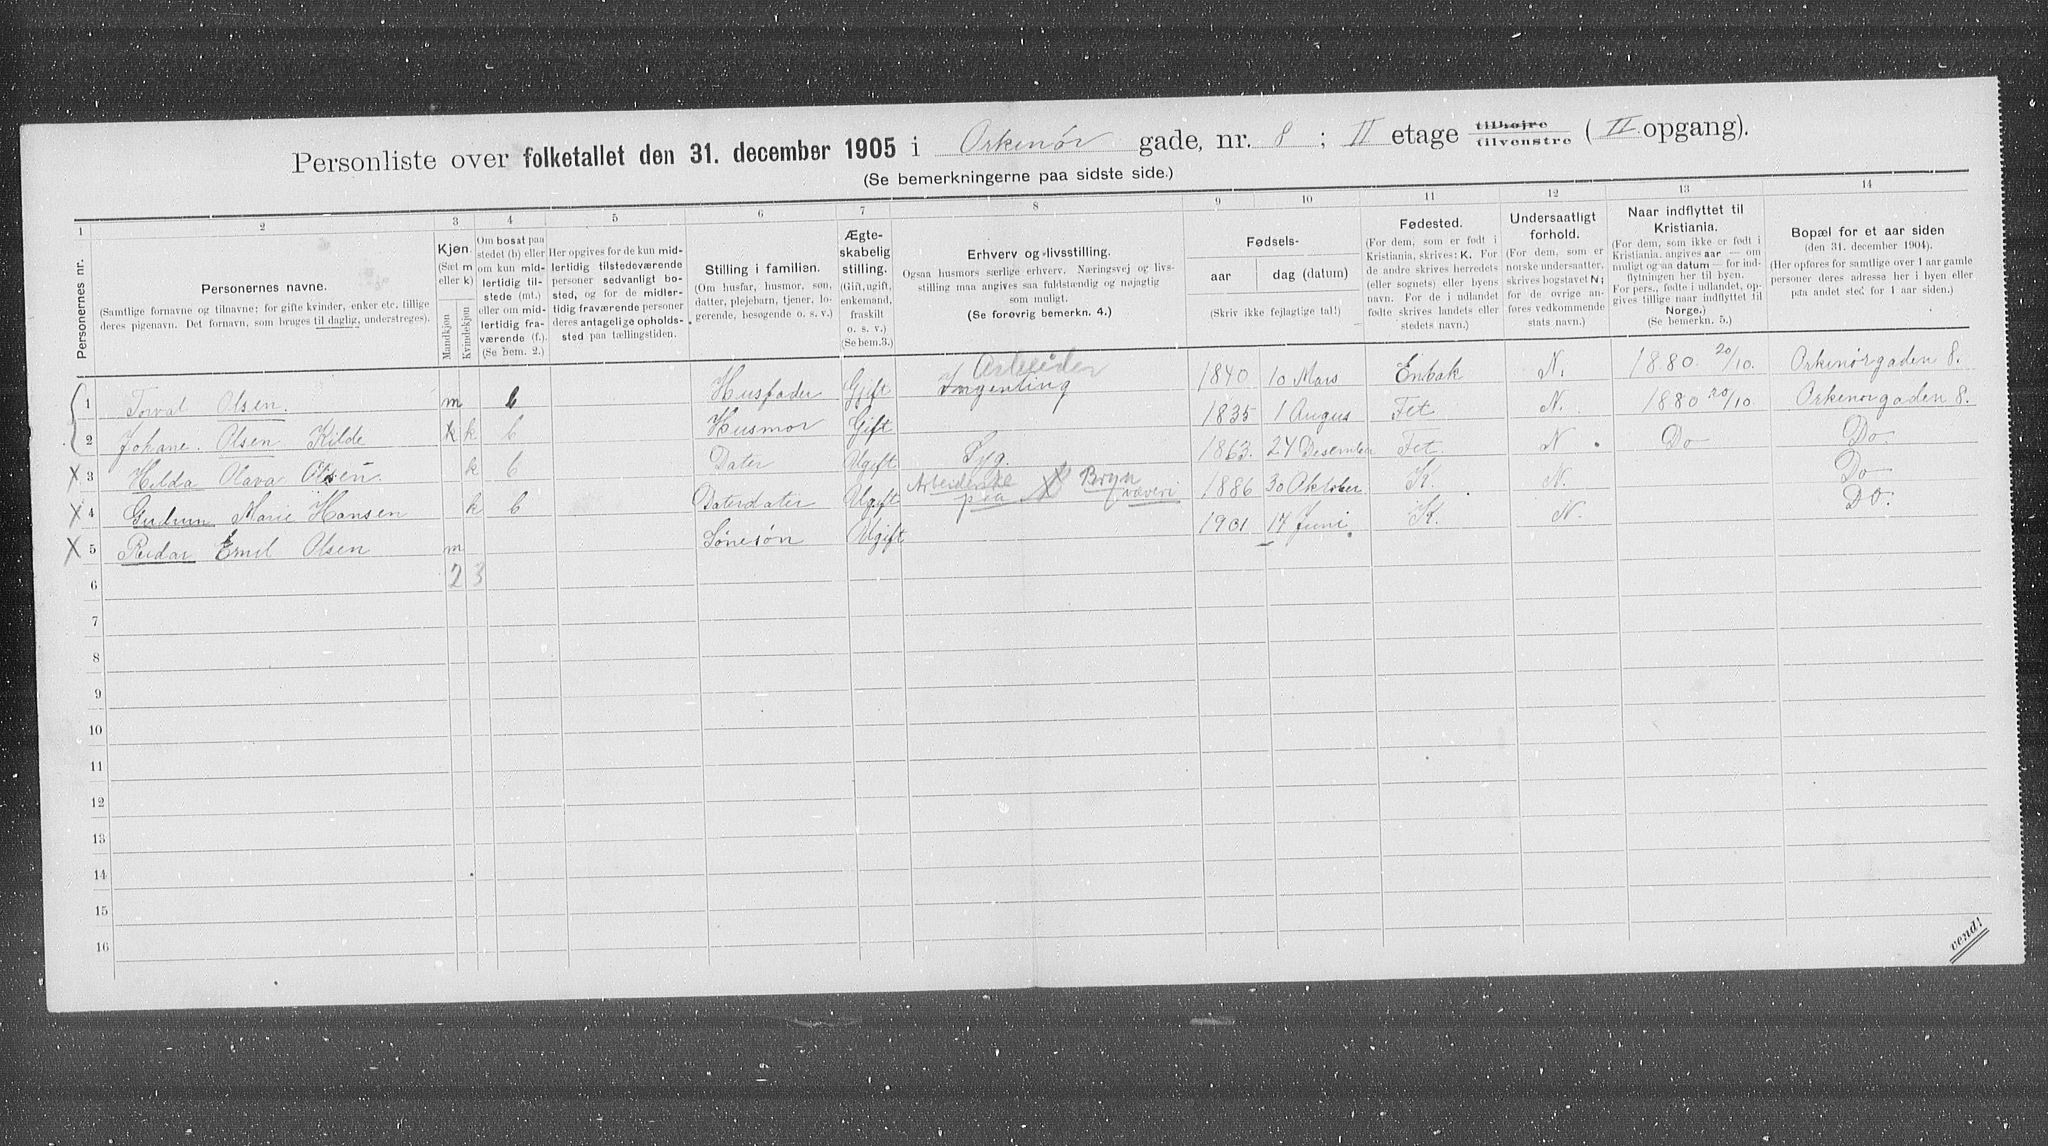 Personliste over folketallet den 31. december 1905 i Orkenør gade, nr. 8 ; II etage tilhøjre tilvenstre ( II opgang).
(Se bemerkningerne paa sidste side.)
1 2 3 4 5 6 7 8 9 10 11 12 13 14
Personernes nr.
Personernes navne.
(Samtlige fornavne og tilnavne; for gifte kvinder, enker etc. tillige
deres pigenavn. Det fornavn, som bruges til daglig, understreges).
Kjøn.
(Sæt m
eller k)
Mandkjøn
Kvindekjøn
Om bosat paa
stedet (b) eller
om kun mid-
lertidig til-
stede (mt.)
eller om mid-
lertidig fra-
værende (f.).
(Se bem. 2.)
Her opgives for de kun mid-
lertidig tilstedeværende
personer sedvanligt bo-
sted, og for de midler-
tidig fraværende personer
deres antagelige opholds-
sted paa tællingstiden.
Stilling i familien.
(Om husfar, husmor, søn,
datter, plejebarn, tjener, lo-
gerende, besøgende o. s. v.)
Ægte-
skabelig
stilling.
(Gift, ugift,
enkemand,
fraskilt
o. s. v.)
(Se bem. 3.)
Erhverv og livsstilling.
Ogsaa husmors særlige erhverv. Næringsvej og livs-
stilling maa angives saa fuldstændig og nøjagtig
som muligt.
(Se forøvrig bemerkn. 4.)
Fødsels-
aar dag (datum)
(Skriv ikke fejlagtige tal!)
Fødested.
(For dem, som er født i
Kristiania, skrives: K. For
de andre skrives herredets
(eller sognets) eller byens
navn. For de i udlandet
fødte skrives landets eller
stedets navn.)
Undersaatligt
forhold.
(For dem, som er
norske undersaatter,
skrives bogstavet N;
for de øvrige an-
føres vedkommende
stats navn.)
Naar indflyttet til
Kristiania.
(For dem, som ikke er født i
Kristiania, angives aar — om
muligt og aa datum — for ind-
flytningen her til byen.
For pers., fødte i udlandet, op-
gives tillige naar indflyttet til
Norge.)
(Se bemerkn. 5.)
Bopæl for et aar siden
(den 31. december 1904).
(Her opføres for samtlige over 1 aar gamle
personer deres adresse her i byen eller
paa andet sted for 1 aar siden.)
Arbeider
1 Torval Olsen. m b Husfader Gift Ingenting 1840 10 Mars Enbak N. 1880. 20/10. Orkenørgaden 8.
2 Johane. Olsen Kilde k k b Husmor Gift 1835 1 Augus Fet N. 1880 20/10 Orkenorgaden 8.
X 3 Helda Olava Olsen. k b Dater Ugift Syg. 1863. 24 Desember Fet. N. Do Do.
X 4 Gudrun Marie Hansen k b Daterdater Ugift Arbeiderske paa Bryn væveri 1886 30 Oktober K. N. Do
X 5 Reidar Emil Olsen m Sønesøn Ugift 1901 17 Juni K. N. Do.
6 2 3
7
8
9
10
11
12
13
14
15
16
vend!